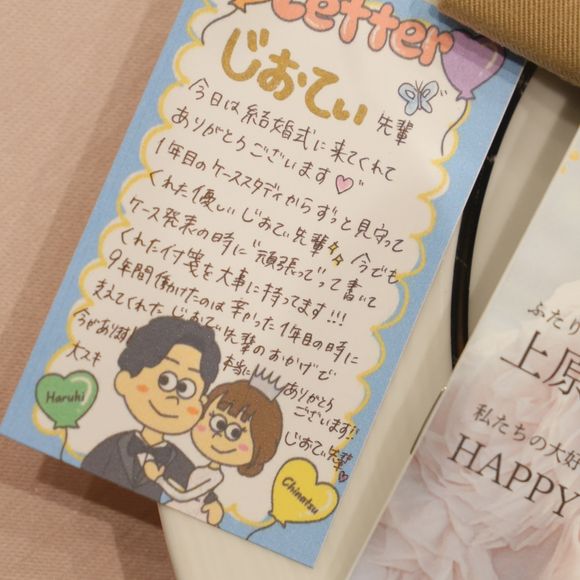 Letter
じおてぃ 先輩
今日は結婚式に来てくれて
ありがとうございます♡
1年目のケーススタディからずっと見守って
くれた優しいじおてぃ先輩 今でも
ケース発表の時に"頑張って"って書いて
くれた付箋を大事に持ってます!!!
9年間働けたのは辛かった1年目の時に
支えてくれたじおてぃ先輩のおかげで
今があります!
本当に ありがとう
ございます!!
大スキ
じおてぃ先輩♡
Haruki
Chinatsu
ふたり
上原
私たちの大好
HAPPY